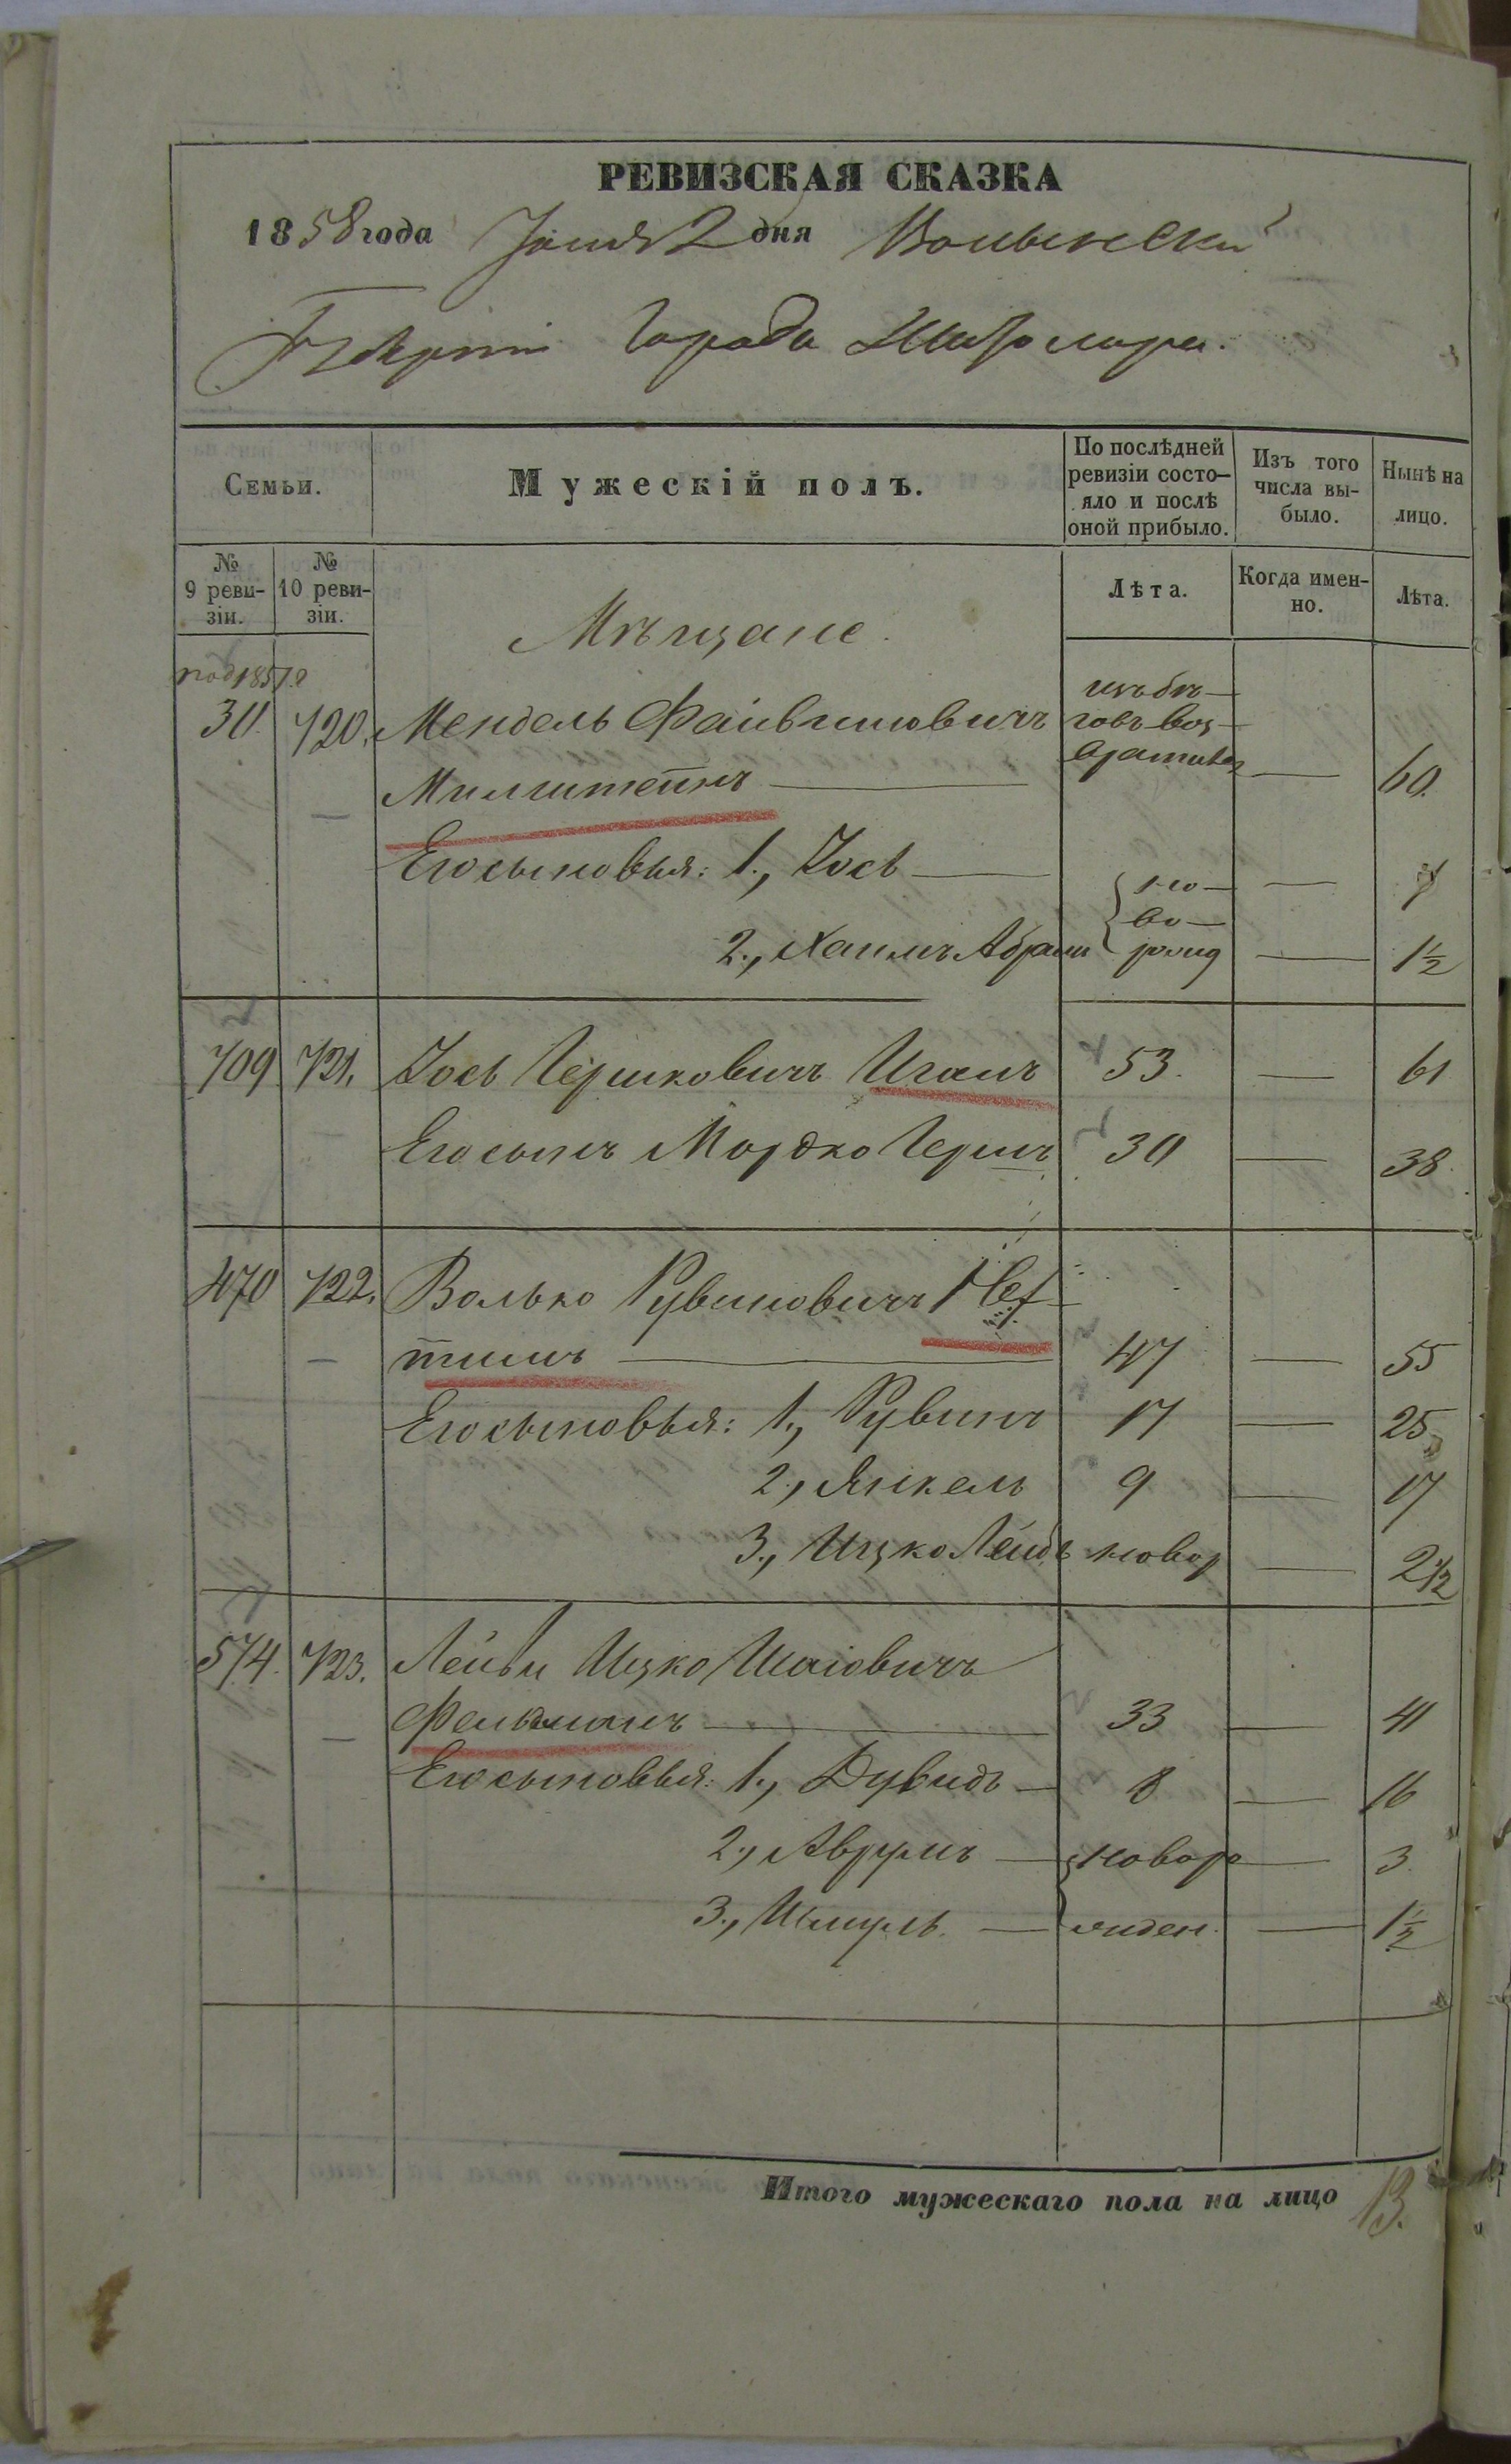 РЕВИЗСКАЯ СКАЗКА
1858 года Іюня 2 дня Волынской
Губерніи Города Житомира.
Семьи.
Мужескій полъ.
По послѣдней ревизіи состо-
яло и послѣ
оной прибыло.
Изъ того
числа вы-
было.
Нынѣ на
лицо.
№
9 реви-
зіи.
№
10 реви-
зіи.
Лѣта.
Когда имен-
но.
Лѣта.
Мѣщане.
30. 720. Мендель изъ бѣ-
говъ воз-
вратився — 60.
Его сыновья: 1., Іось — { но- —
во-
2., Хаимъ Абрамъ рожд — 1½
709 721. Іось Гершковичъ 53. — 61
Его сынъ Мордко Гершъ 30 — 38.
470 722. Волько Рувиновичъ
47 — 55
Его сыновья: 1., Рувинъ 17 — 25
2., Янкель 9 — 17
3., Ицко Лейбъ новор — 2½
574. 723. Лейба Ицко Шаіовичъ
Фельдманъ — 33 — 41
Его сыновья: 1., Дувидъ — 8 — 16
2., Аврумъ — новоро — 3.
3., Шмуль. — — 1½
Итого мужескаго пола на лицо 13.